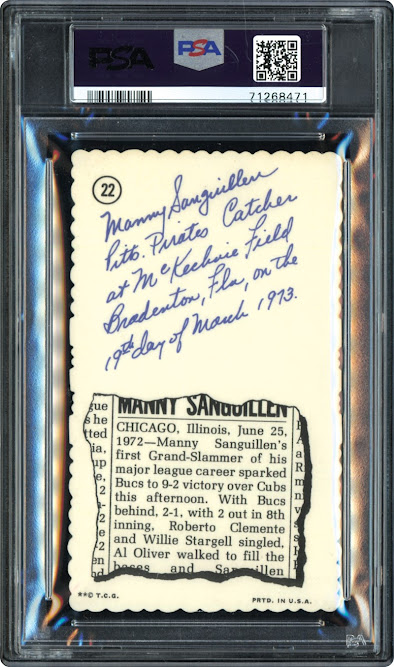 PSA
PSA
71268471
22
Manny Sanguillen
Pitts. Pirates Catcher
at McKechnie Field
Bradenton, Fla, on the
19th day of March 1973.
MANNY SANGUILLEN
CHICAGO, Illinois, June 25,
1972—Manny Sanguillen's
first Grand-Slammer of his
major league career sparked
Bucs to 9-2 victory over Cubs
this afternoon. With Bucs
behind, 2-1, with 2 out in 8th
inning, Roberto Clemente
and Willie Stargell singled,
Al Oliver walked to fill the
bases and Sanguillen
**© T.C.G.
PRTD. IN U.S.A.
PSA